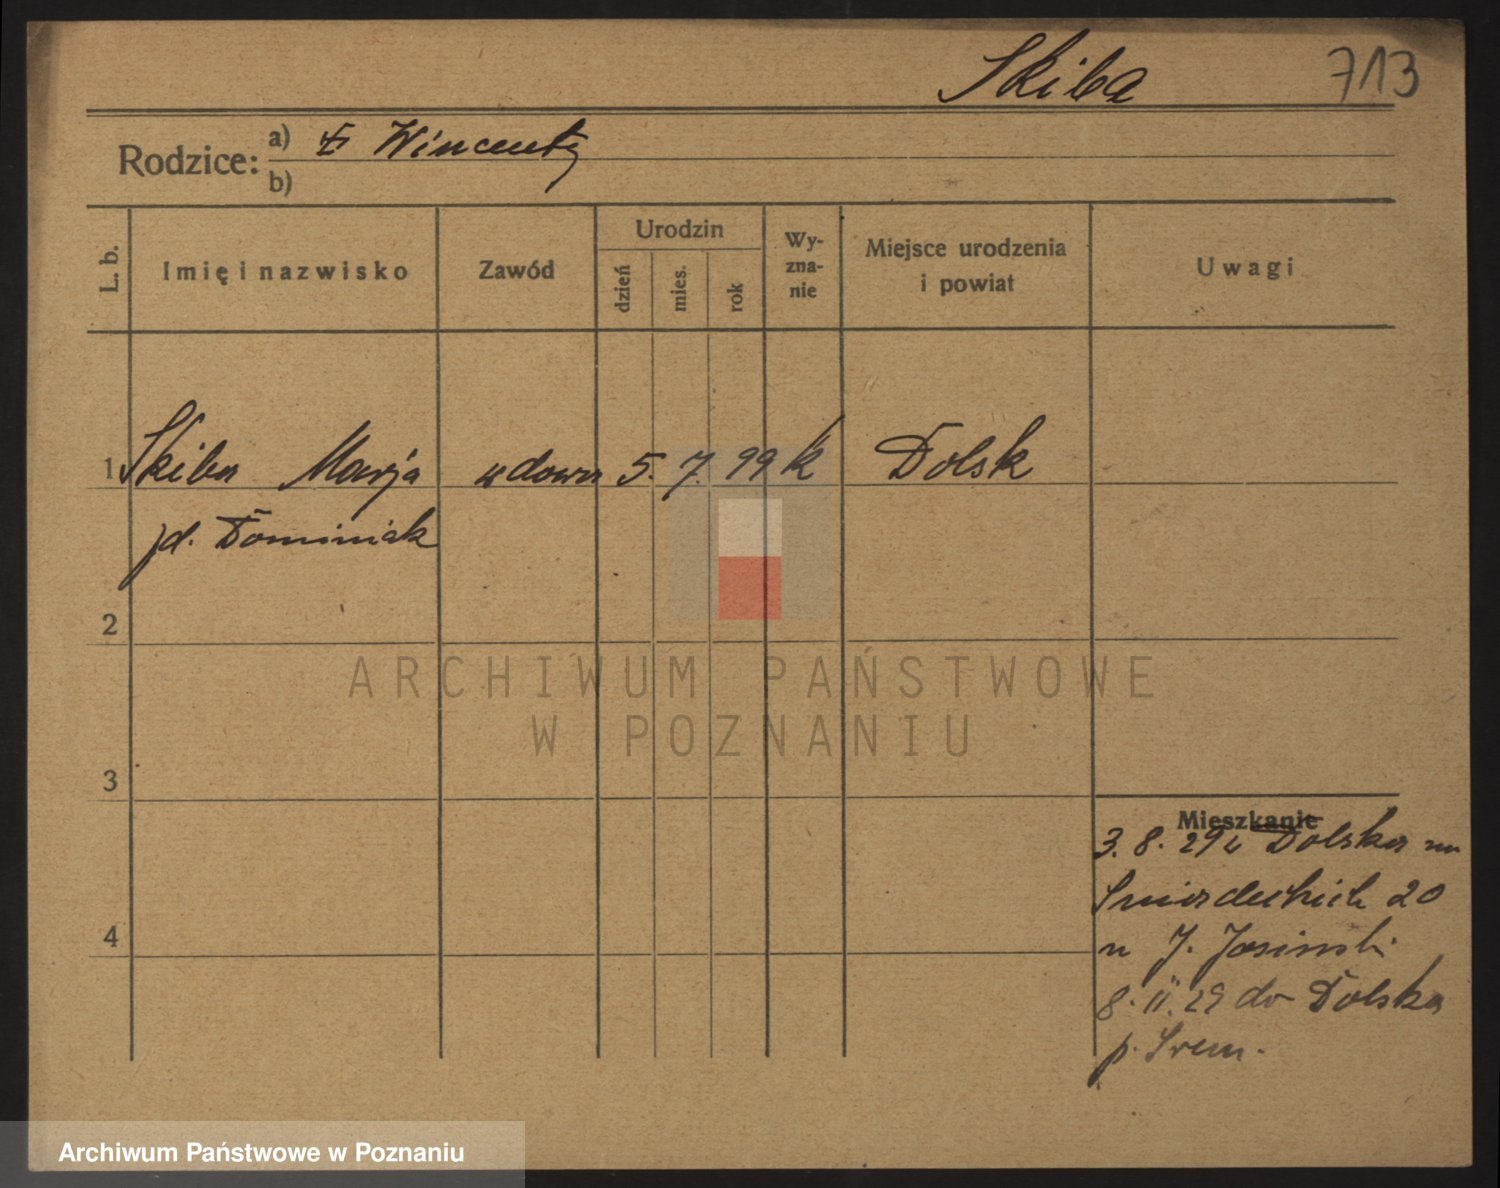 Skiba 713
Rodzice: a) Wincenty
b)
L. b.
Imię i nazwisko
Zawód
Urodzin
dzień
mies.
rok
Wy-
zna-
nie
Miejsce urodzenia
i powiat
Uwagi
1 Skiba Marja wdowa 5. 7. 99 k Dolsk
Dominiak
2
3
4
Mieszkanie
3. 8. 29 z Dolska na
Śniadeckich 20
u J. Jasinski
8. 11. 29 do Dolska
p. Śrem.
ARCHIWUM PAŃSTWOWE
W POZNANIU
Archiwum Państwowe w Poznaniu